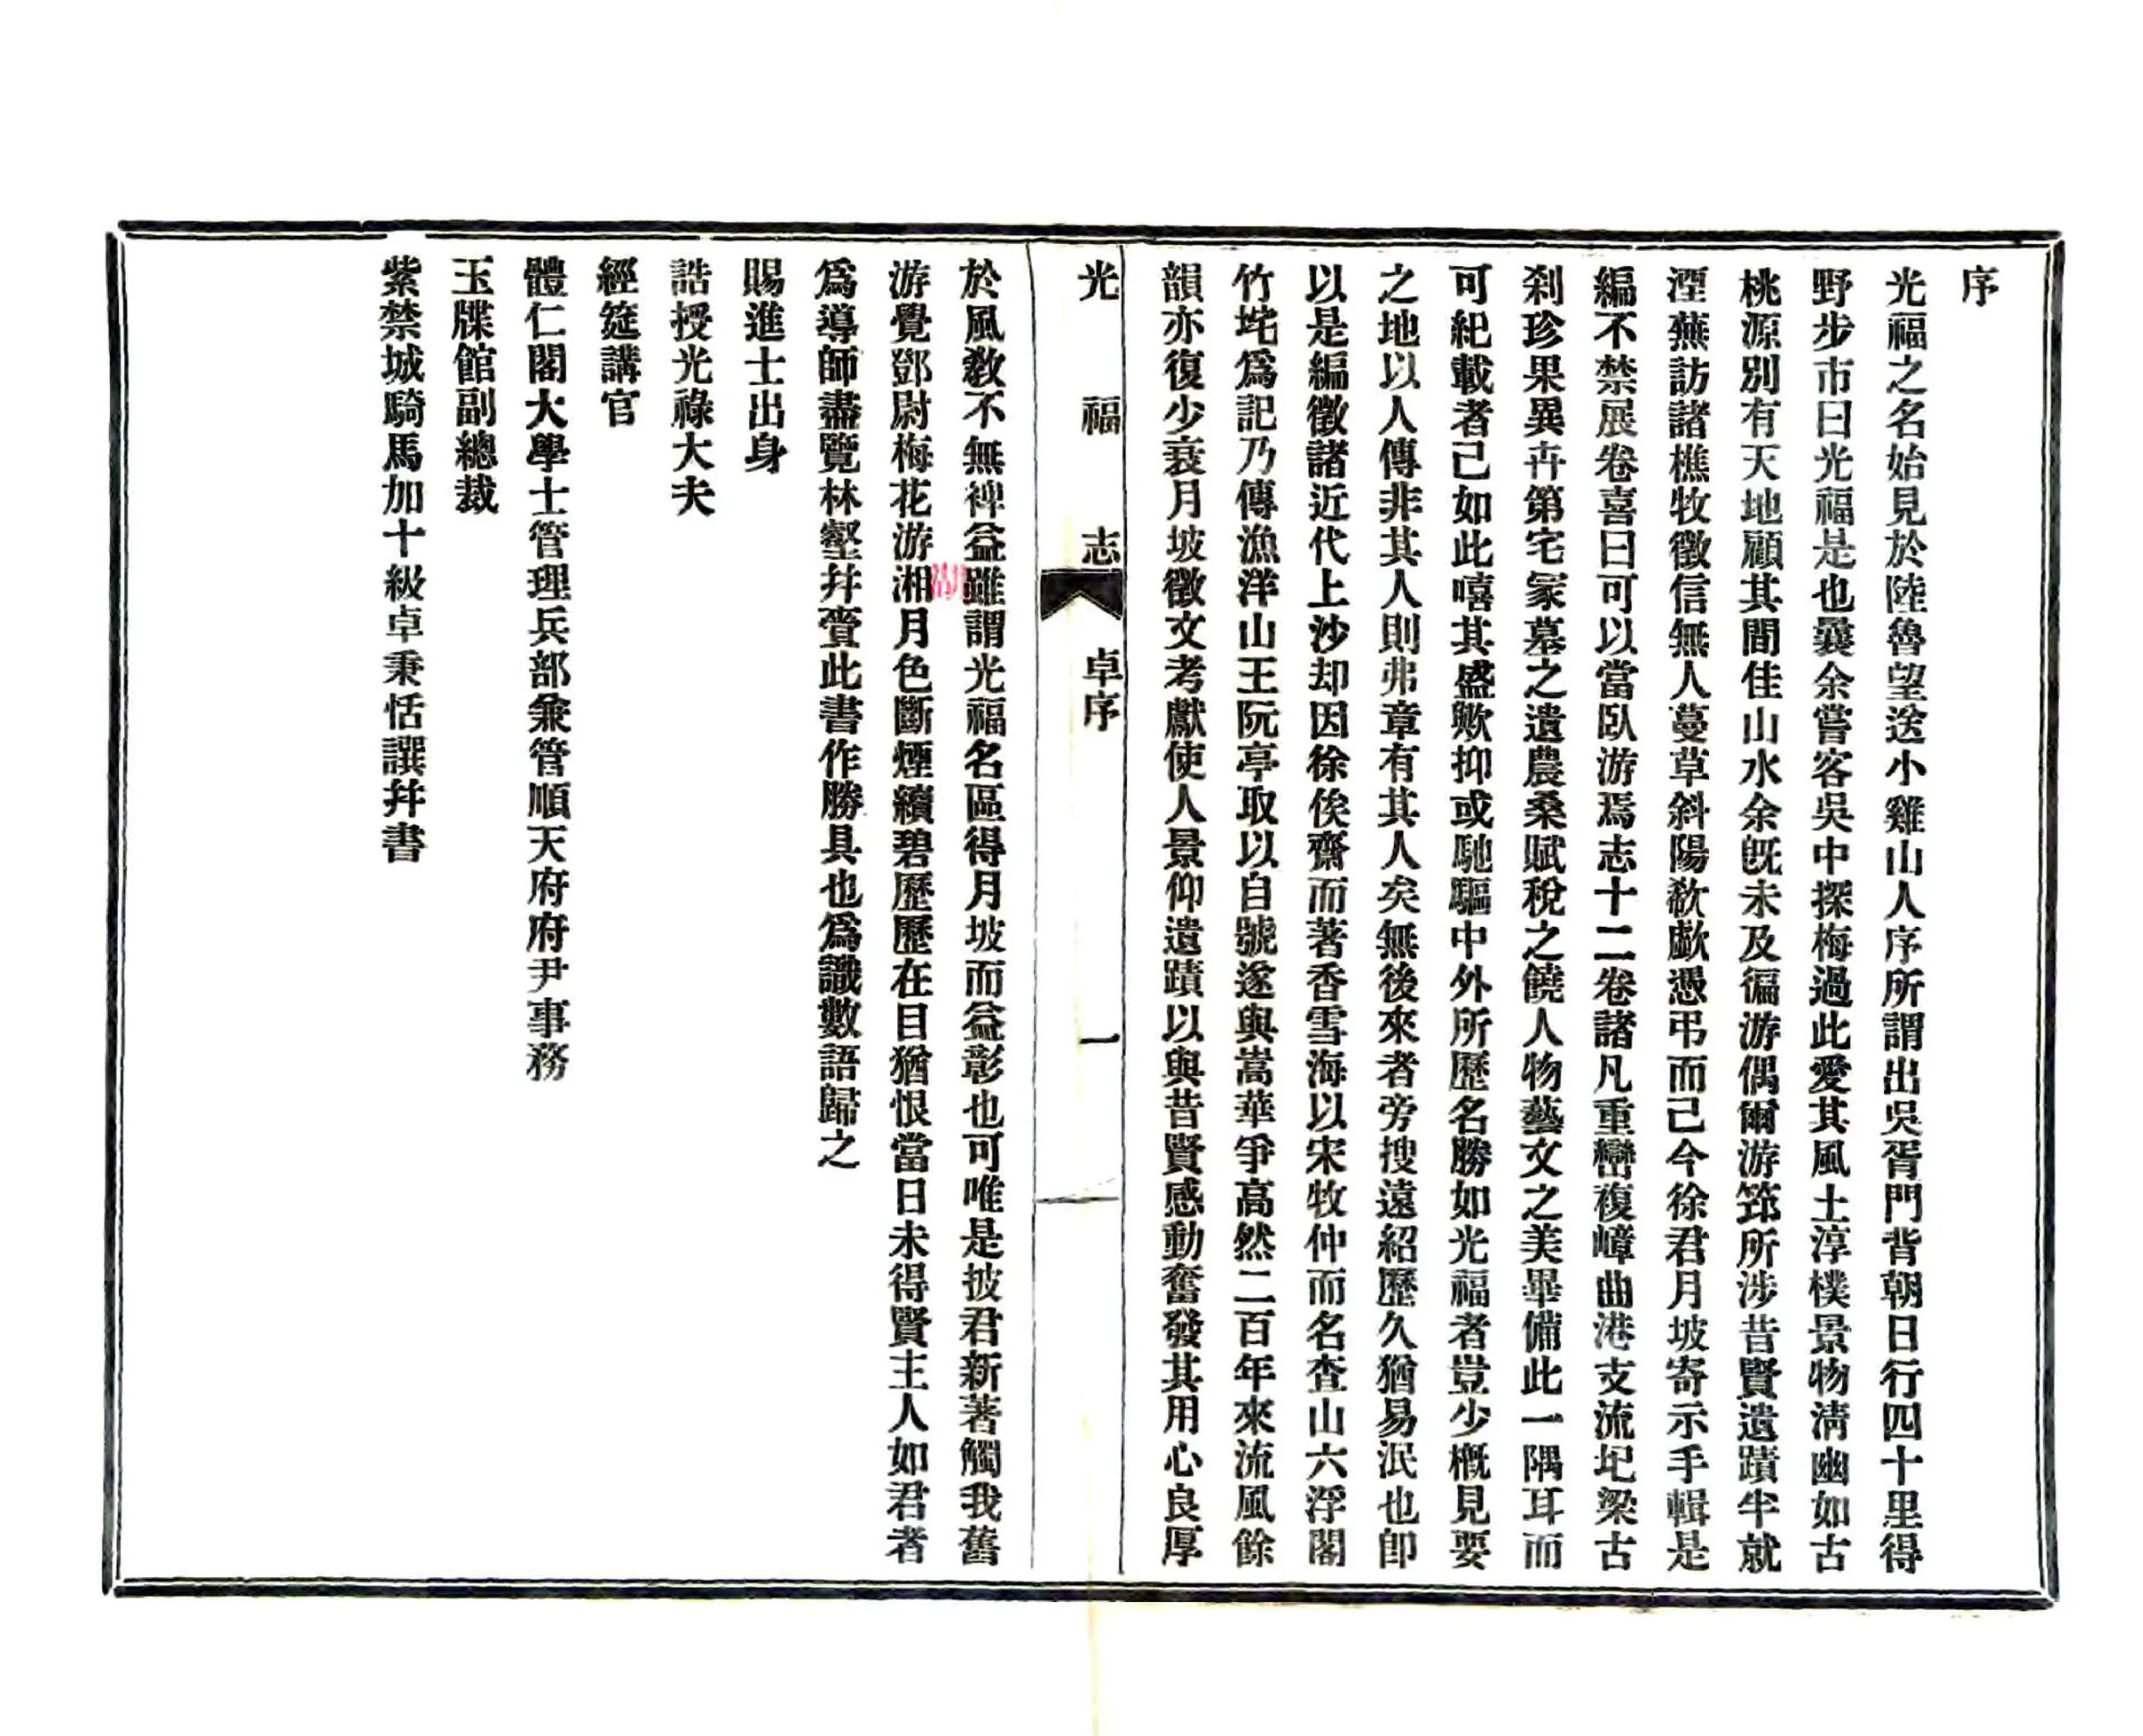 序
光福之名始見於陸魯望送小雞山人序所謂出吳胥門背朝日行四十里得
野步市曰光福是也曩余嘗客吳中探梅過此愛其風土淳樸景物淸幽如古
桃源別有天地顧其間佳山水余旣未及徧游偶爾游筇所涉昔賢遺蹟半就
湮蕪訪諸樵牧徵信無人蔓草斜陽欷歔憑弔而已今徐君月坡寄示手輯是
編不禁展卷喜曰可以當臥游焉志十二卷諸凡重巒複嶂曲港支流圯梁古
刹珍果異卉第宅冢墓之遺農桑賦稅之饒人物藝文之美畢備此一隅耳而
可紀載者已如此嘻其盛歟抑或馳驅中外所歷名勝如光福者豈少槪見要
之地以人傳非其人則弗章有其人矣無後來者旁搜遠紹歷久猶易泯也卽
以是編徵諸近代上沙却因徐俟齋而著香雪海以宋牧仲而名查山六浮閣
竹垞爲記乃傳漁洋山王阮亭取以自號遂與嵩華爭高然二百年來流風餘
韻亦復少衰月坡徵文考獻使人景仰遺蹟以與昔賢感動奮發其用心良厚
光福志 卓序 一
於風敎不無裨益雖謂光福名區得月坡而益彰也可唯是披君新著觸我舊
游覺鄧尉梅花游湘月色斷煙續碧歷歷在目猶恨當日未得賢主人如君者
爲導師盡覽林壑幷賫此書作勝具也爲識數語歸之
賜進士出身
誥授光祿大夫
經筵講官
體仁閣大學士管理兵部兼管順天府府尹事務
玉牒館副總裁
紫禁城騎馬加十級卓秉恬譔幷書